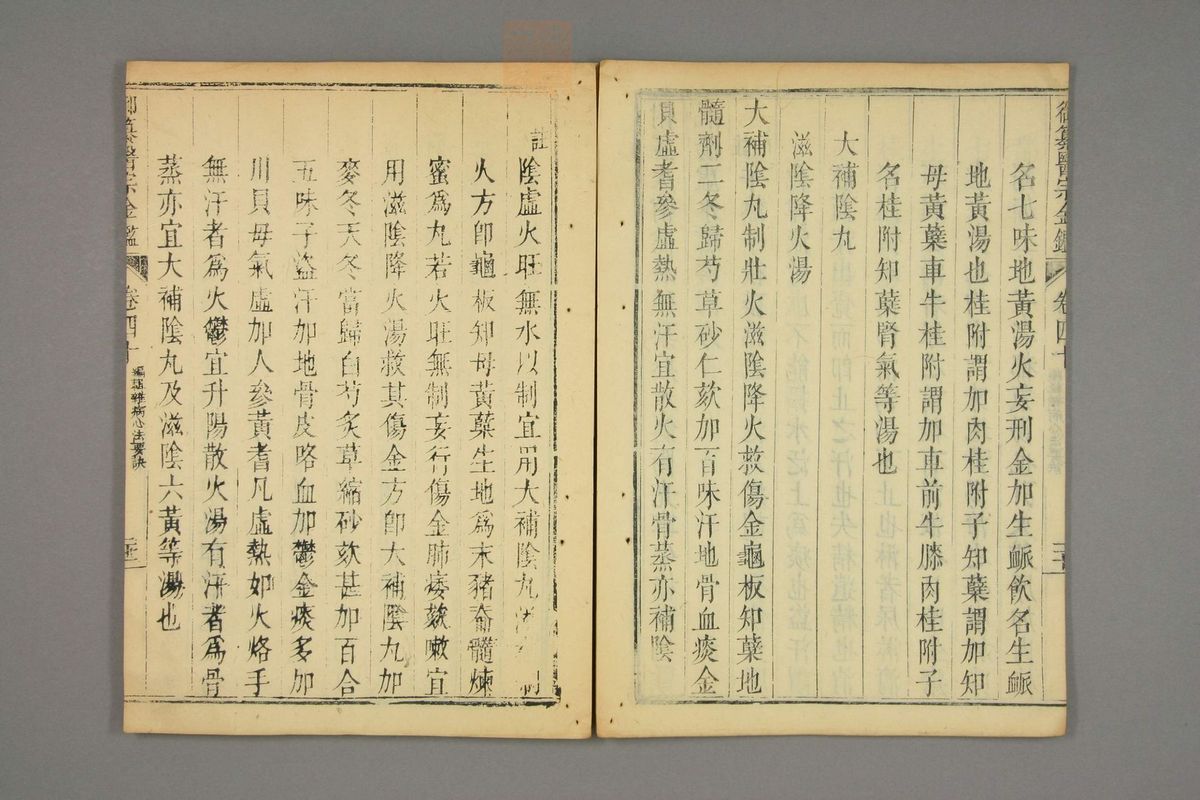 御纂醫宗金鑑 卷四十
名七味地黃湯火妄刑金加生脈飲名生脈
地黃湯也桂附謂加肉桂附子知蘗謂加知
母黃蘗車牛桂附謂加車前牛膝肉桂附子
名桂附知蘗腎氣等湯也
大補陰丸
滋陰降火湯
大補陰丸制壯火滋陰降火救傷金龜板知蘗地
髓劑二冬歸芍草砂仁欬加百味汗地骨血痰金
貝虛耆參虛熱無汗宜散火有汗骨蒸亦補陰
註陰虛火旺無水以制宜用大補陰丸 制
火方卽龜板知母黃蘗生地爲末豬脊髓煉
蜜爲丸若火旺無制妄行傷金肺痿欬嗽宜
用滋陰降火湯救其傷金方卽大補陰丸加
麥冬天冬當歸白芍炙草縮砂欬甚加百合
五味子盜汗加地骨皮咯血加鬱金痰多加
川貝母氣虛加人參黃耆凡虛熱如火烙手
無汗者爲火鬱宜升陽散火湯有汗者爲骨
蒸亦宜大補陰丸及滋陰六黃等湯也
御纂醫宗金鑑 卷四十 編輯雜病心法要訣